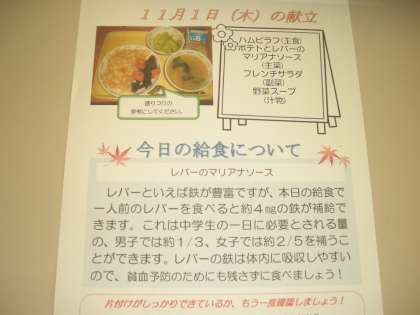 11月1日（木）の献立
ハムピラフ（主食）
ポテトとレバーの
マリアナソース
（主菜）
フレンチサラダ
（副菜）
野菜スープ
（汁物）
盛りつけの
参考にしてください。
今日の給食について
レバーのマリアナソース
レバーといえば鉄が豊富ですが、本日の給食で
一人前のレバーを食べると約4㎎の鉄が補給で
きます。これは中学生の一日に必要とされる量
の、男子では約1/3、女子では約2/5を補うこ
とができます。レバーの鉄は体内に吸収しやすい
ので、貧血予防のためにも残さずに食べましょう！
片付けがしっかりできているか、もう一度確認しましょう！